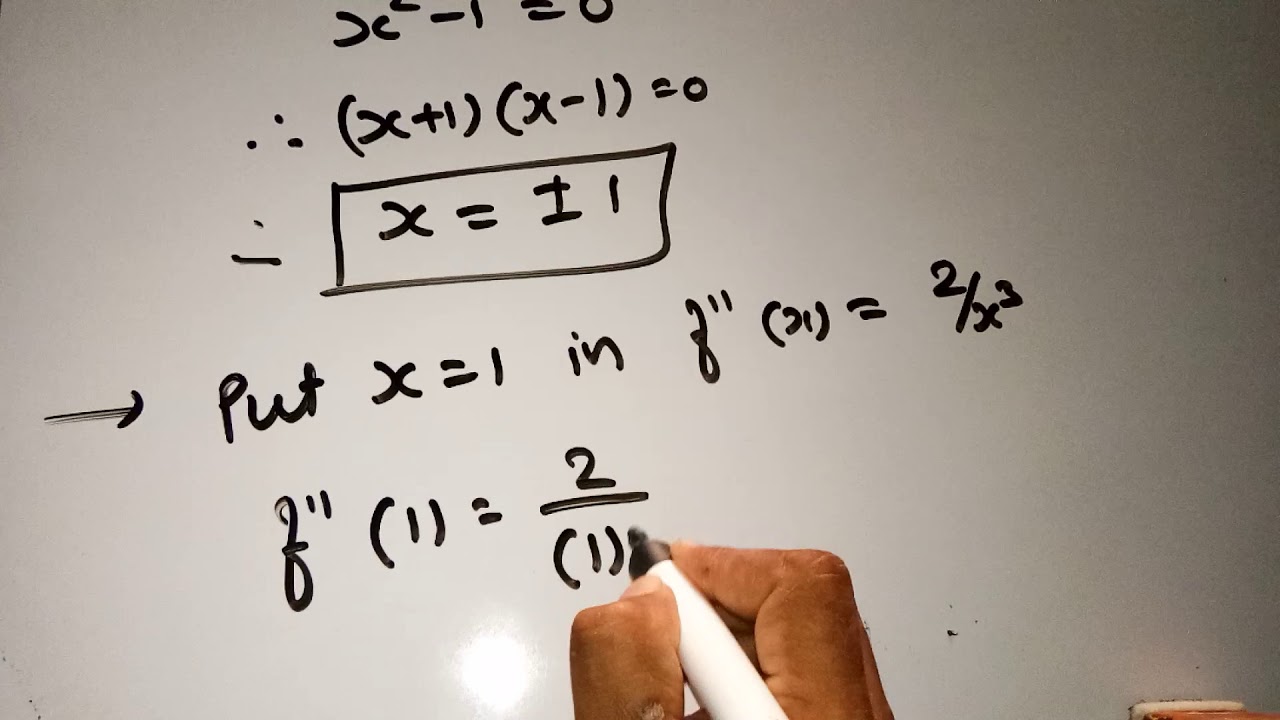 x² - 1 = 0
∴ (x+1) (x-1) = 0
∴ x = ± 1
→ Put x = 1 in f'' (x) = 2/x³
f'' (1) = 2/(1)